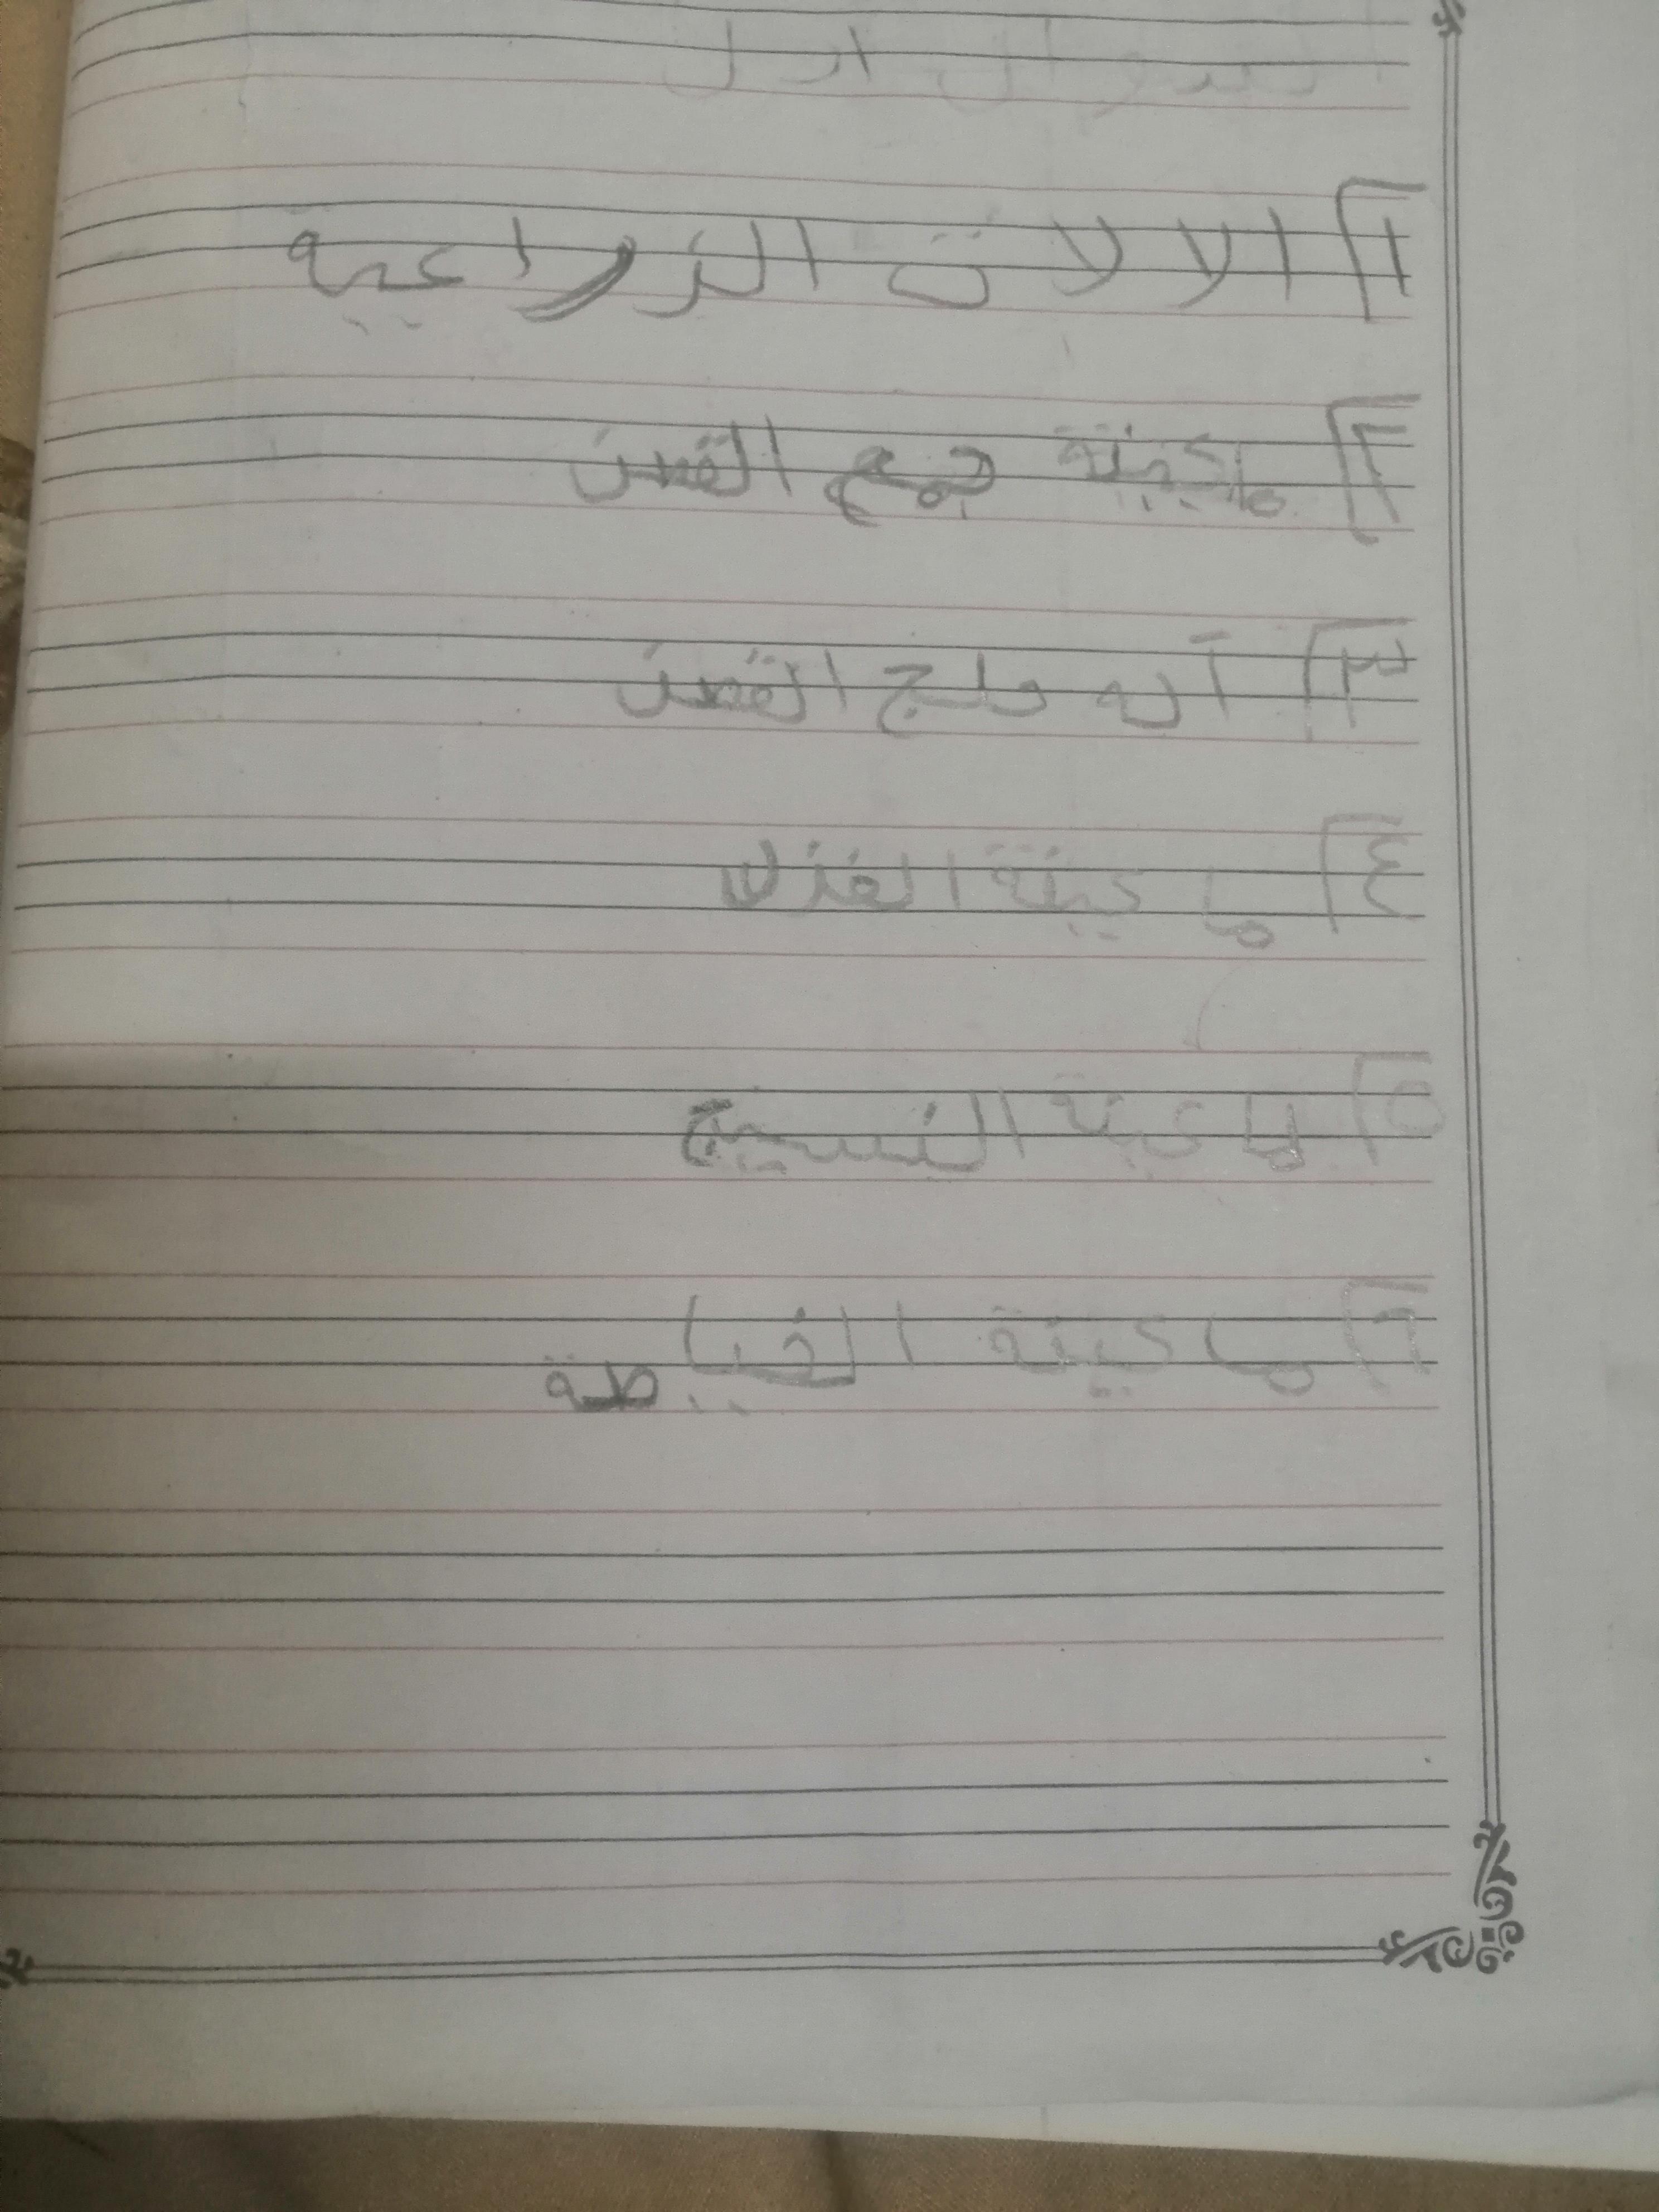 السوال الاول
١ الالات الزراعية
٢ ماكينة جمع القصن
٣ آله حلج القصن
٤ ماكينة الغزل
٥ ماكينة النسيج
٦ ماكينة الخياطة